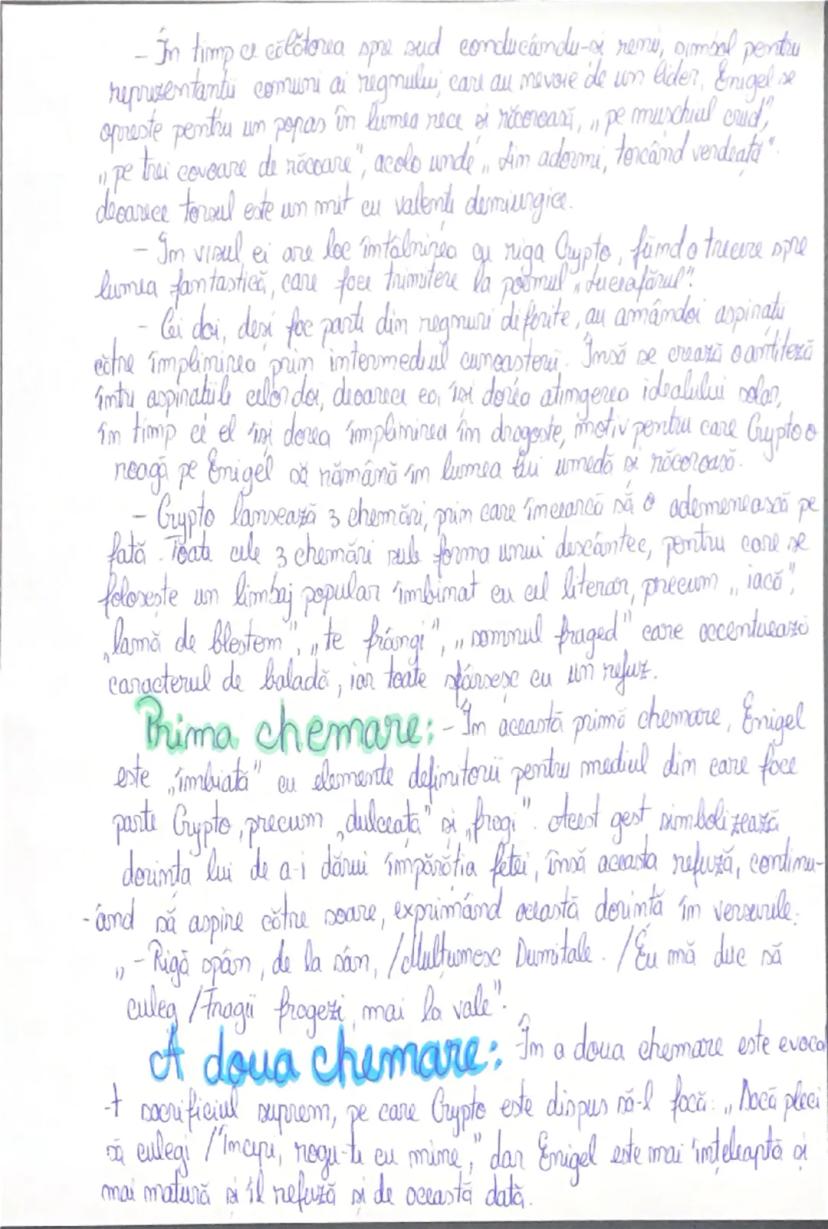 - În timp ce călătorea spre sud conducându-și renii, simbol pentru
reprezentanții comuni ai regnului, care au nevoie de un lider, Enigel se
oprește pentru un popas în lumea rece și răcoroasă, „pe mușchiul crud”,
„pe trei covoare de răcoare”, acolo unde „lin adormi, torcând verdeață”.
deoarece torsul este un mit cu valențe demiurgice.
- În visul ei are loc întâlnirea cu riga Crypto, fiind o trecere spre
lumea fantastică, care face trimitere la poemul „Luceafărul”.
- Cei doi, deși fac parte din regnuri diferite, au amândoi aspirații
către împlinirea prin intermediul cunoașterii. Însă se crează o antiteză
între aspirațiile celor doi, deoarece ea își dorea atingerea idealului solar,
în timp ce el își dorea împlinirea în dragoste, motiv pentru care Crypto o
roagă pe Enigel să rămână în lumea lui umedă și răcoroasă.
- Crypto lansează 3 chemări, prin care încearcă să o ademenească pe
fată. Toate cele 3 chemări sub forma unui descântec, pentru care se
folosește un limbaj popular îmbinat cu cel literar, precum „iacă”,
„lamă de blestem”, „te frângi”, „somnul fraged” care accentuează
caracterul de baladă, iar toate sfârșesc cu un refuz.
Prima chemare: - În această primă chemare, Enigel
este „îmbiată” cu elemente definitorii pentru mediul din care face
parte Crypto, precum „dulceață” și „fragi”. Acest gest simbolizează
dorința lui de a-i dărui împărăția fetei, însă aceasta refuză, continu-
-ând să aspire către soare, exprimând această dorință în versurile:
„- Rigă spân, de la sân, /Mulțumesc Dumitale. /Eu mă duc să
culeg /Fragii fragezi, mai la vale”.
A doua chemare: În a doua chemare este evoca
-t sacrificiul suprem, pe care Crypto este dispus să-l facă: „Dacă pleci
să culegi /Începi, rogu-te cu mine,” dar Enigel este mai înțeleaptă și
mai matură și îl refuză și de această dată.